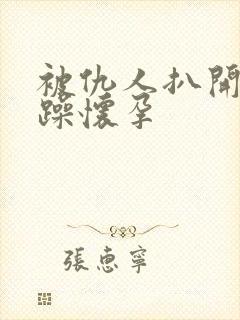 被仇人扒開
躁懷孕
張惠寧